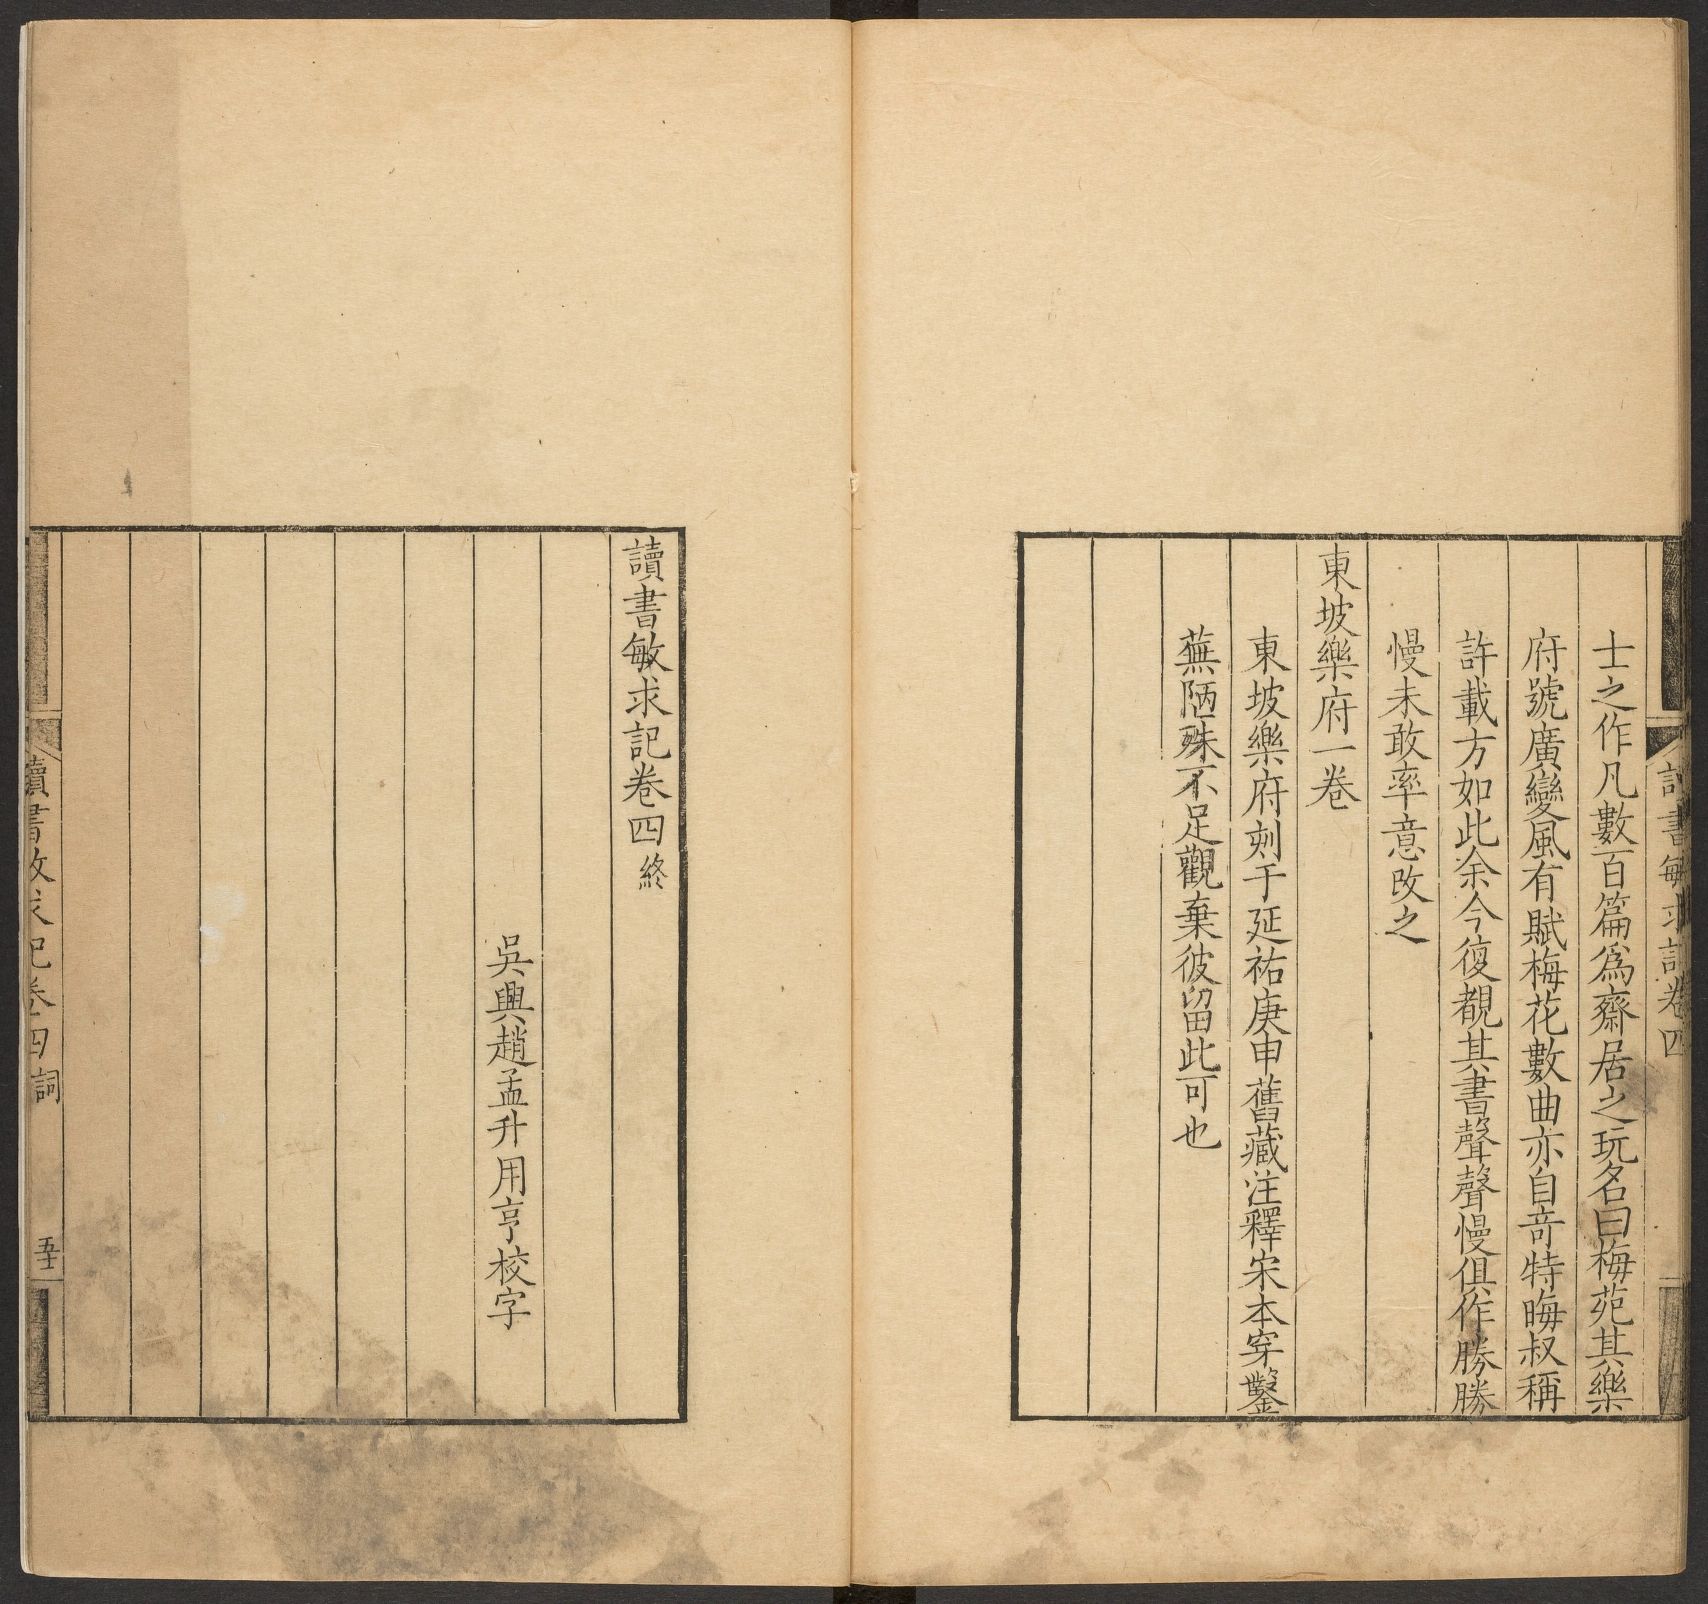 士之作凡數百篇爲齋居之玩名曰梅苑其樂
府號廣變風有賦梅花數曲亦自竒特晦叔稱
許載方如此余今復覩其書聲聲慢俱作勝勝
慢未敢率意改之
東坡樂府一卷
東坡樂府刻于延祐庚申舊藏注釋宋本穿鑿
蕪陋殊不足觀棄彼留此可也
讀書敏求記卷四
讀書敏求記卷四終
吳興趙孟升用亨校字
讀書敏求記卷四 詞